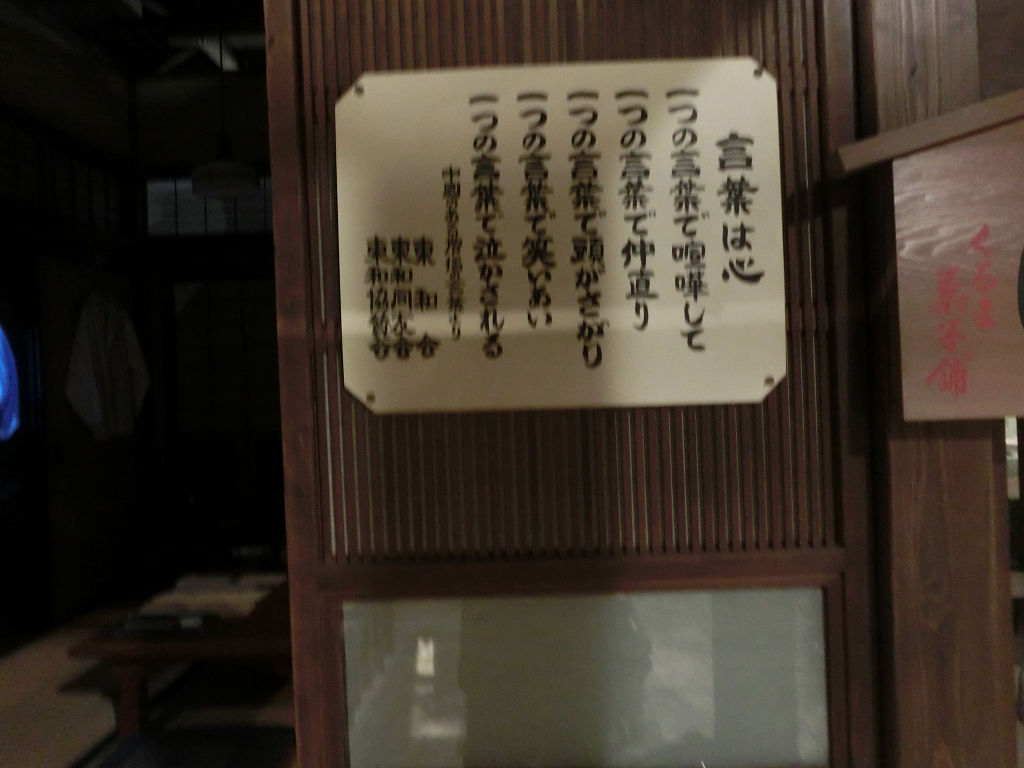 言葉は心
一つの言葉で喧嘩して
一つの言葉で仲直り
一つの言葉で頭がさがり
一つの言葉で笑いあい
一つの言葉で泣かされる
東和会
東和同友会
東和協賛会
くるま
菓子舗